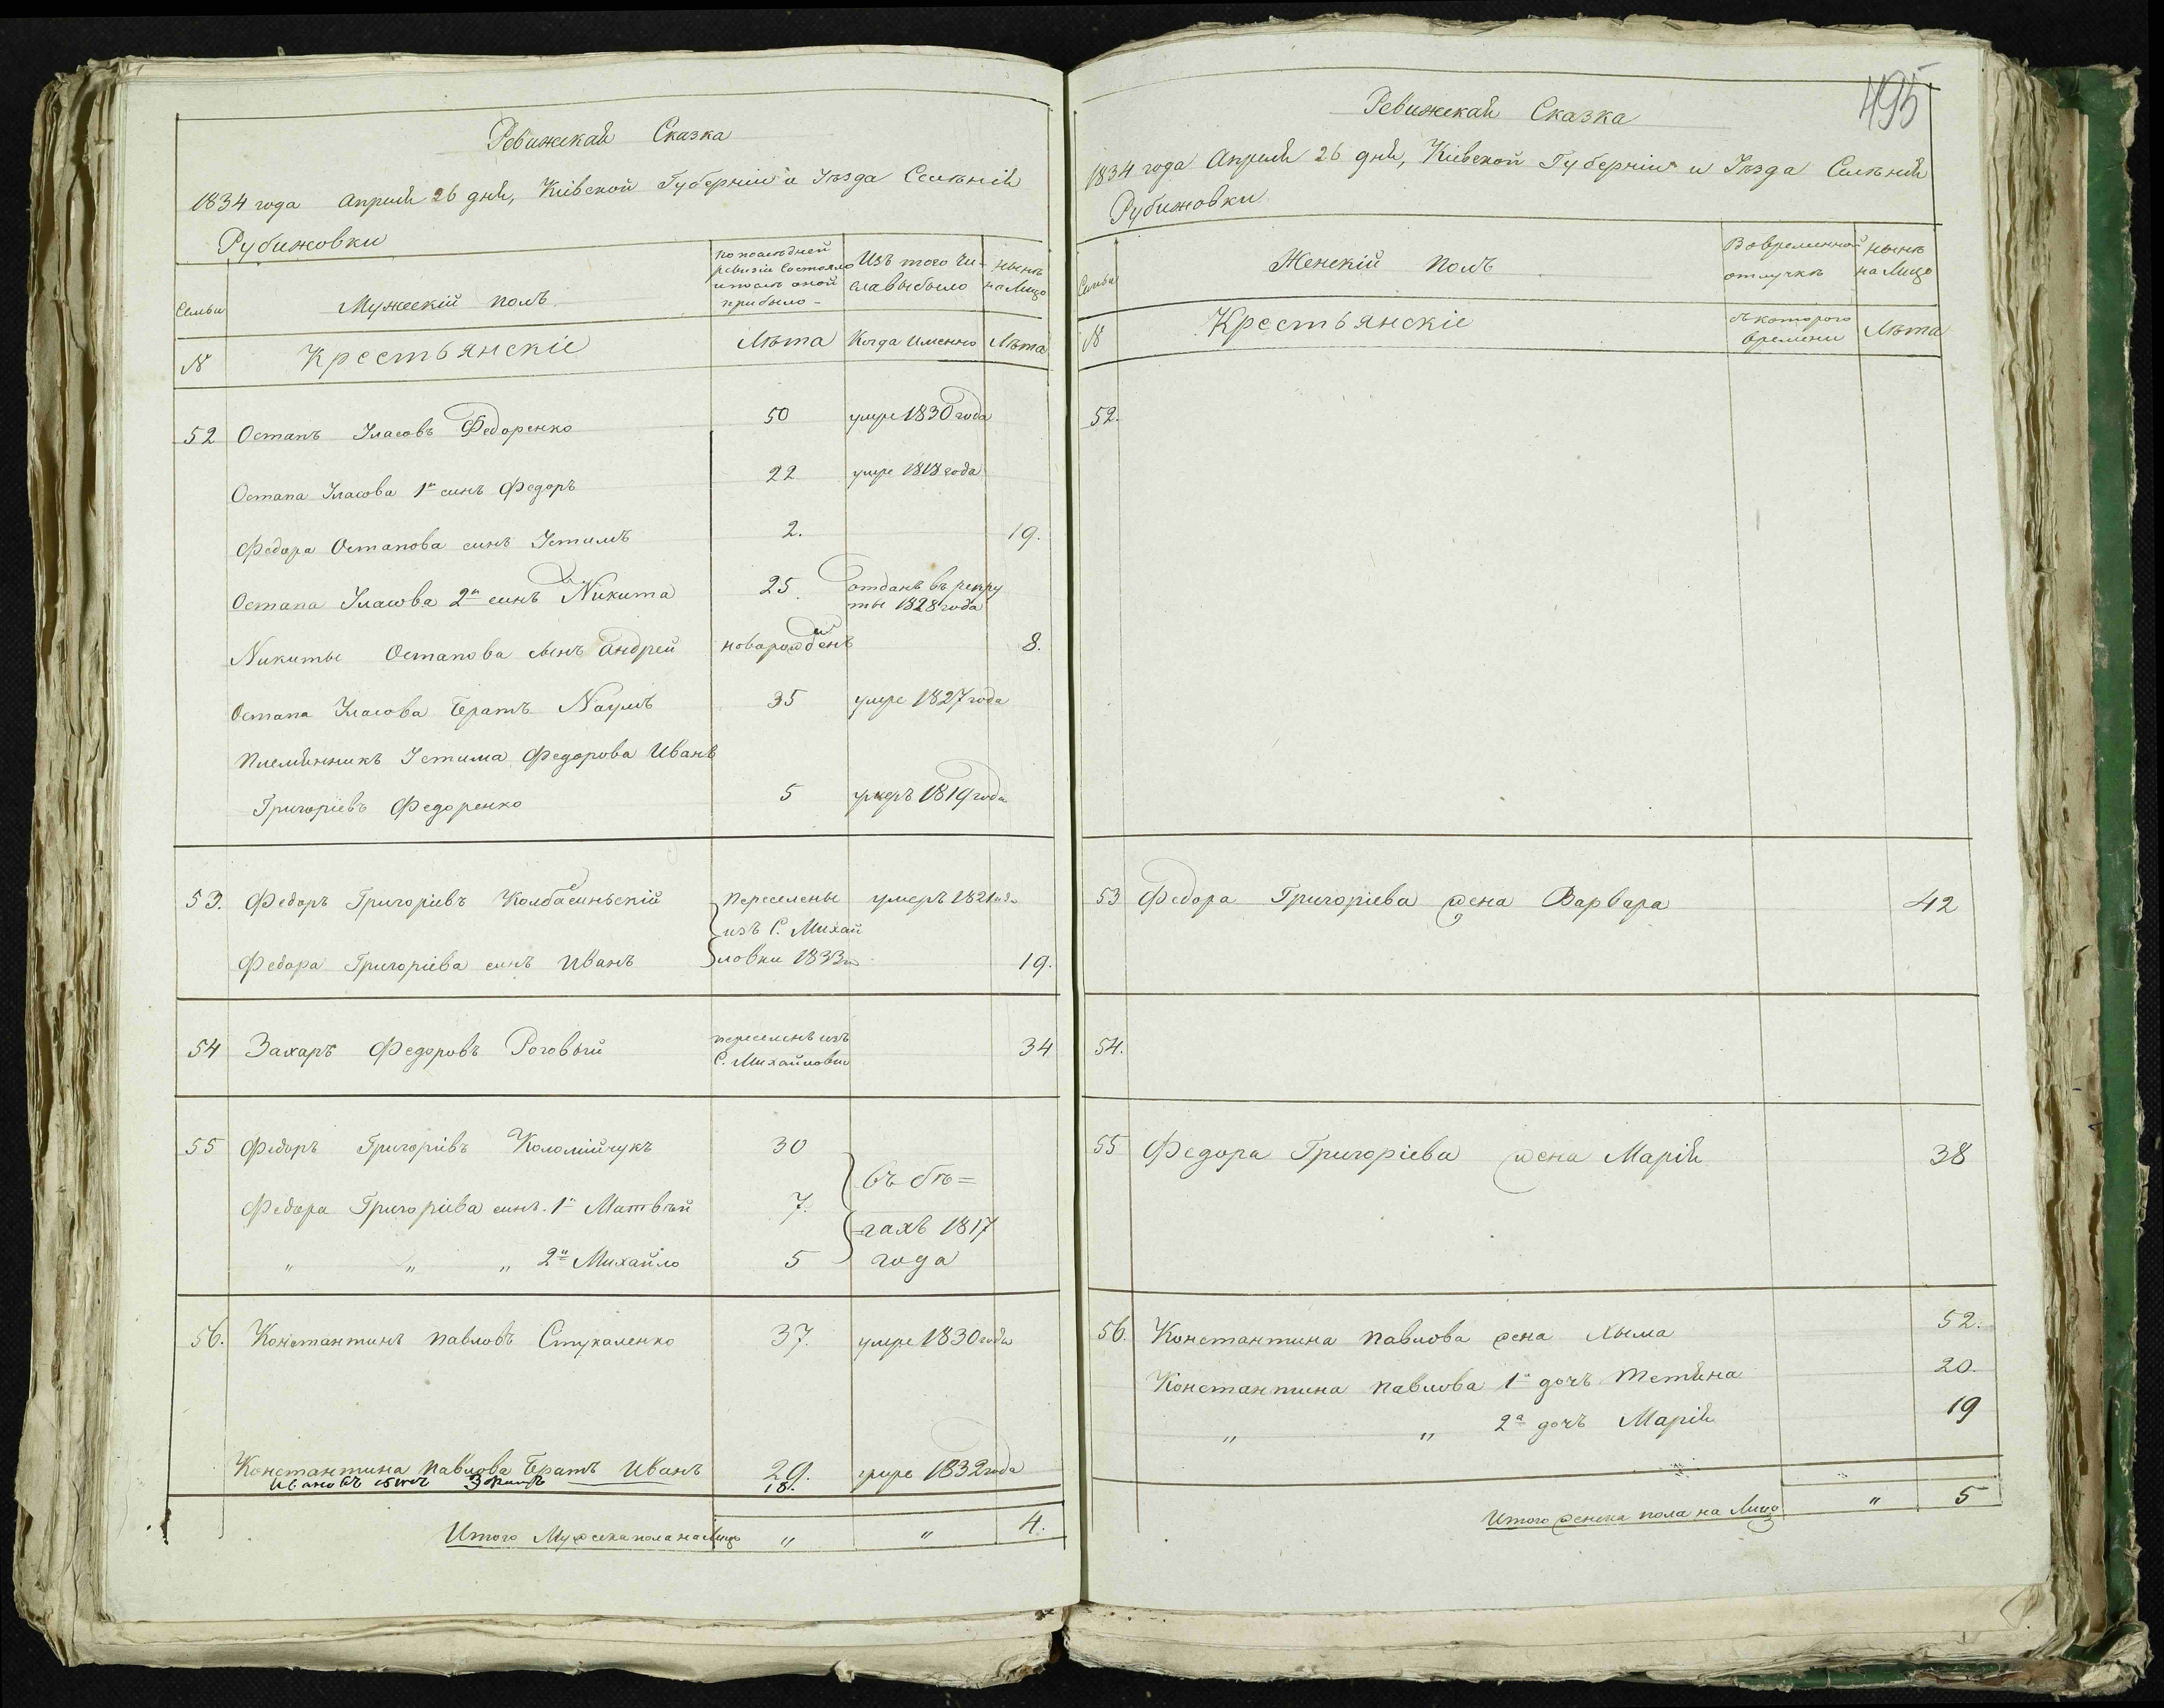 Ревижская Сказка
1834 года Апреля 26 дня, Кіевской Губерніи и Уѣзда Селѣнія
Рубижовки
Семьи
Мужескій полъ
по послѣдней
ревизіи состояло
и послѣ оной
прибыло
Изъ того чи-
сла выбыло
нынѣ
на Лицо
№
Крестьянскіе
Лѣта
Когда именно
Лѣта
52 Остапъ Уласовъ Федоренко 50 умре 1830 года
Остапа Уласова 1й синъ Федоръ 22 умре 1818 года
Федора Остапова синъ Устимъ 2. 19.
Остапа Уласова 2й синъ Никита 25. отданъ въ рекру
ты 1828 года
Никиты Остапова сынъ Андрей новорожденъ 8.
Остапа Уласова братъ Наумъ 35 умре 1827 года
Племянникъ Устима Федорова Иванъ
Григоріевъ Федоренко 5 умеръ 1819 года
53. Федоръ Григоріевъ Колбасиньскій переселены умеръ 1821 года
изъ С. Михай
Федора Григоріева синъ Иванъ ловки 1833 19.
54 Захаръ Федоровъ Роговый переселенъ изъ 34
С. Михайловки
55 Федоръ Григоріевъ Коломійчукъ 30
въ бѣ=
Федора Григоріева синъ 1й Матвѣй 7.
=гахъ 1817
" " " 2й Михайло 5 года
56. Константинъ Павловъ Стукаленко 37. умре 1830 года
Константина Павлова братъ Иванъ 29. умре 1832 года
Ивановъ сынъ 18.
Итого Мужеска пола на Лицо " " 4.
495
Ревижская Сказка
1834 года Апреля 26 дня, Кіевской Губерніи и Уѣзда Селѣнія
Рубижовки
Семьи
Женскій полъ
Во временной
отлучкѣ
нынѣ
на Лицо
№
Крестьянскіе
съ которого
времени
Лѣта
52.
53 Федора Григоріева жена Варвара 42
54.
55 Федора Григоріева жена Марія 38
56. Константина Павлова жена Хыма 52.
Константина Павлова 1я дочъ Тетяна 20.
" " 2я дочъ Марія 19
Итого женска пола на Лицо " 5